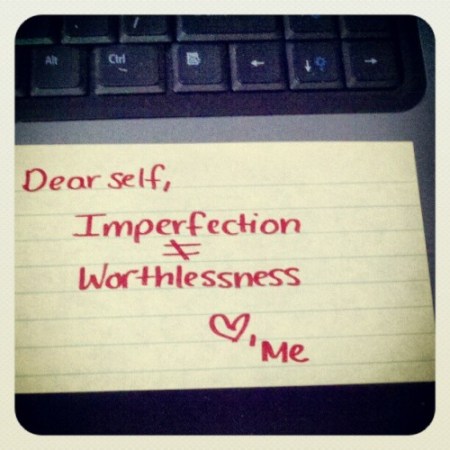 Alt Ctrl
Dear self,
Imperfection
≠
Worthlessness
♡, Me